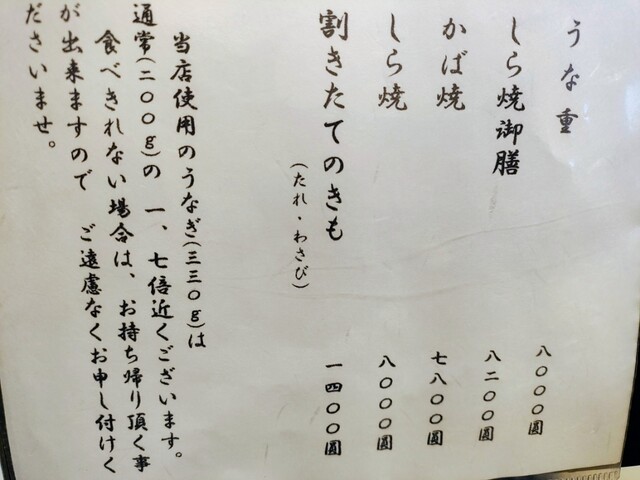 うな重 八〇〇〇圓
しら焼御膳 八二〇〇圓
かば焼 七八〇〇圓
しら焼 八〇〇〇圓
割きたてのきも 一四〇〇圓
(たれ・わさび)
当店使用のうなぎ(三三〇g)は
通常(二〇〇g)の 一、七倍近くございます。
食べきれない場合は、お持ち帰り頂く事
が出来ますので ご遠慮なくお申し付けく
ださいませ。